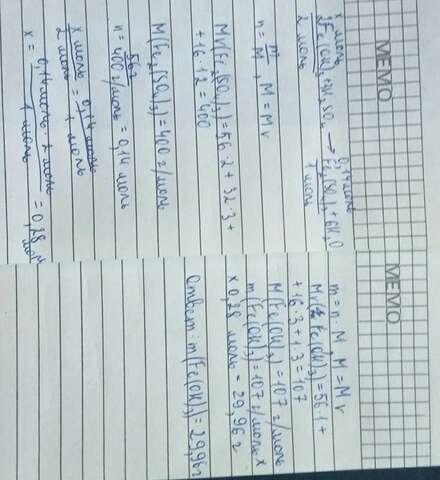 MEMO
x моль 0,14 моль
2Fe(OH)₃ + 3H₂SO₄ → Fe₂(SO₄)₃ + 6H₂O
2 моль 1 моль
n = m/M , M = Mr
Mr(Fe₂(SO₄)₃) = 56·2 + 32·3 +
+ 16·12 = 400
M(Fe₂(SO₄)₃) = 400 г/моль
n = 56г / 400 г/моль = 0,14 моль
x моль / 2 моль = 0,14 моль / 1 моль
x = 0,14 моль · 2 моль / 1 моль = 0,28 моль
MEMO
m = n · M , M = Mr
Mr(Fe(OH)₃) = 56·1 +
+ 16·3 + 1·3 = 107
M(Fe(OH)₃) = 107 г/моль
m(Fe(OH)₃) = 107 г/моль x
x 0,28 моль = 29,96 г
Ответ: m(Fe(OH)₃) = 29,96 г